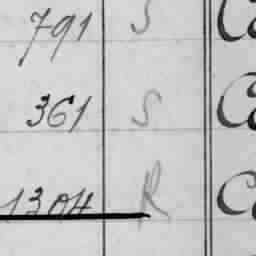 791 S Co
361 S Co
1304 R Co